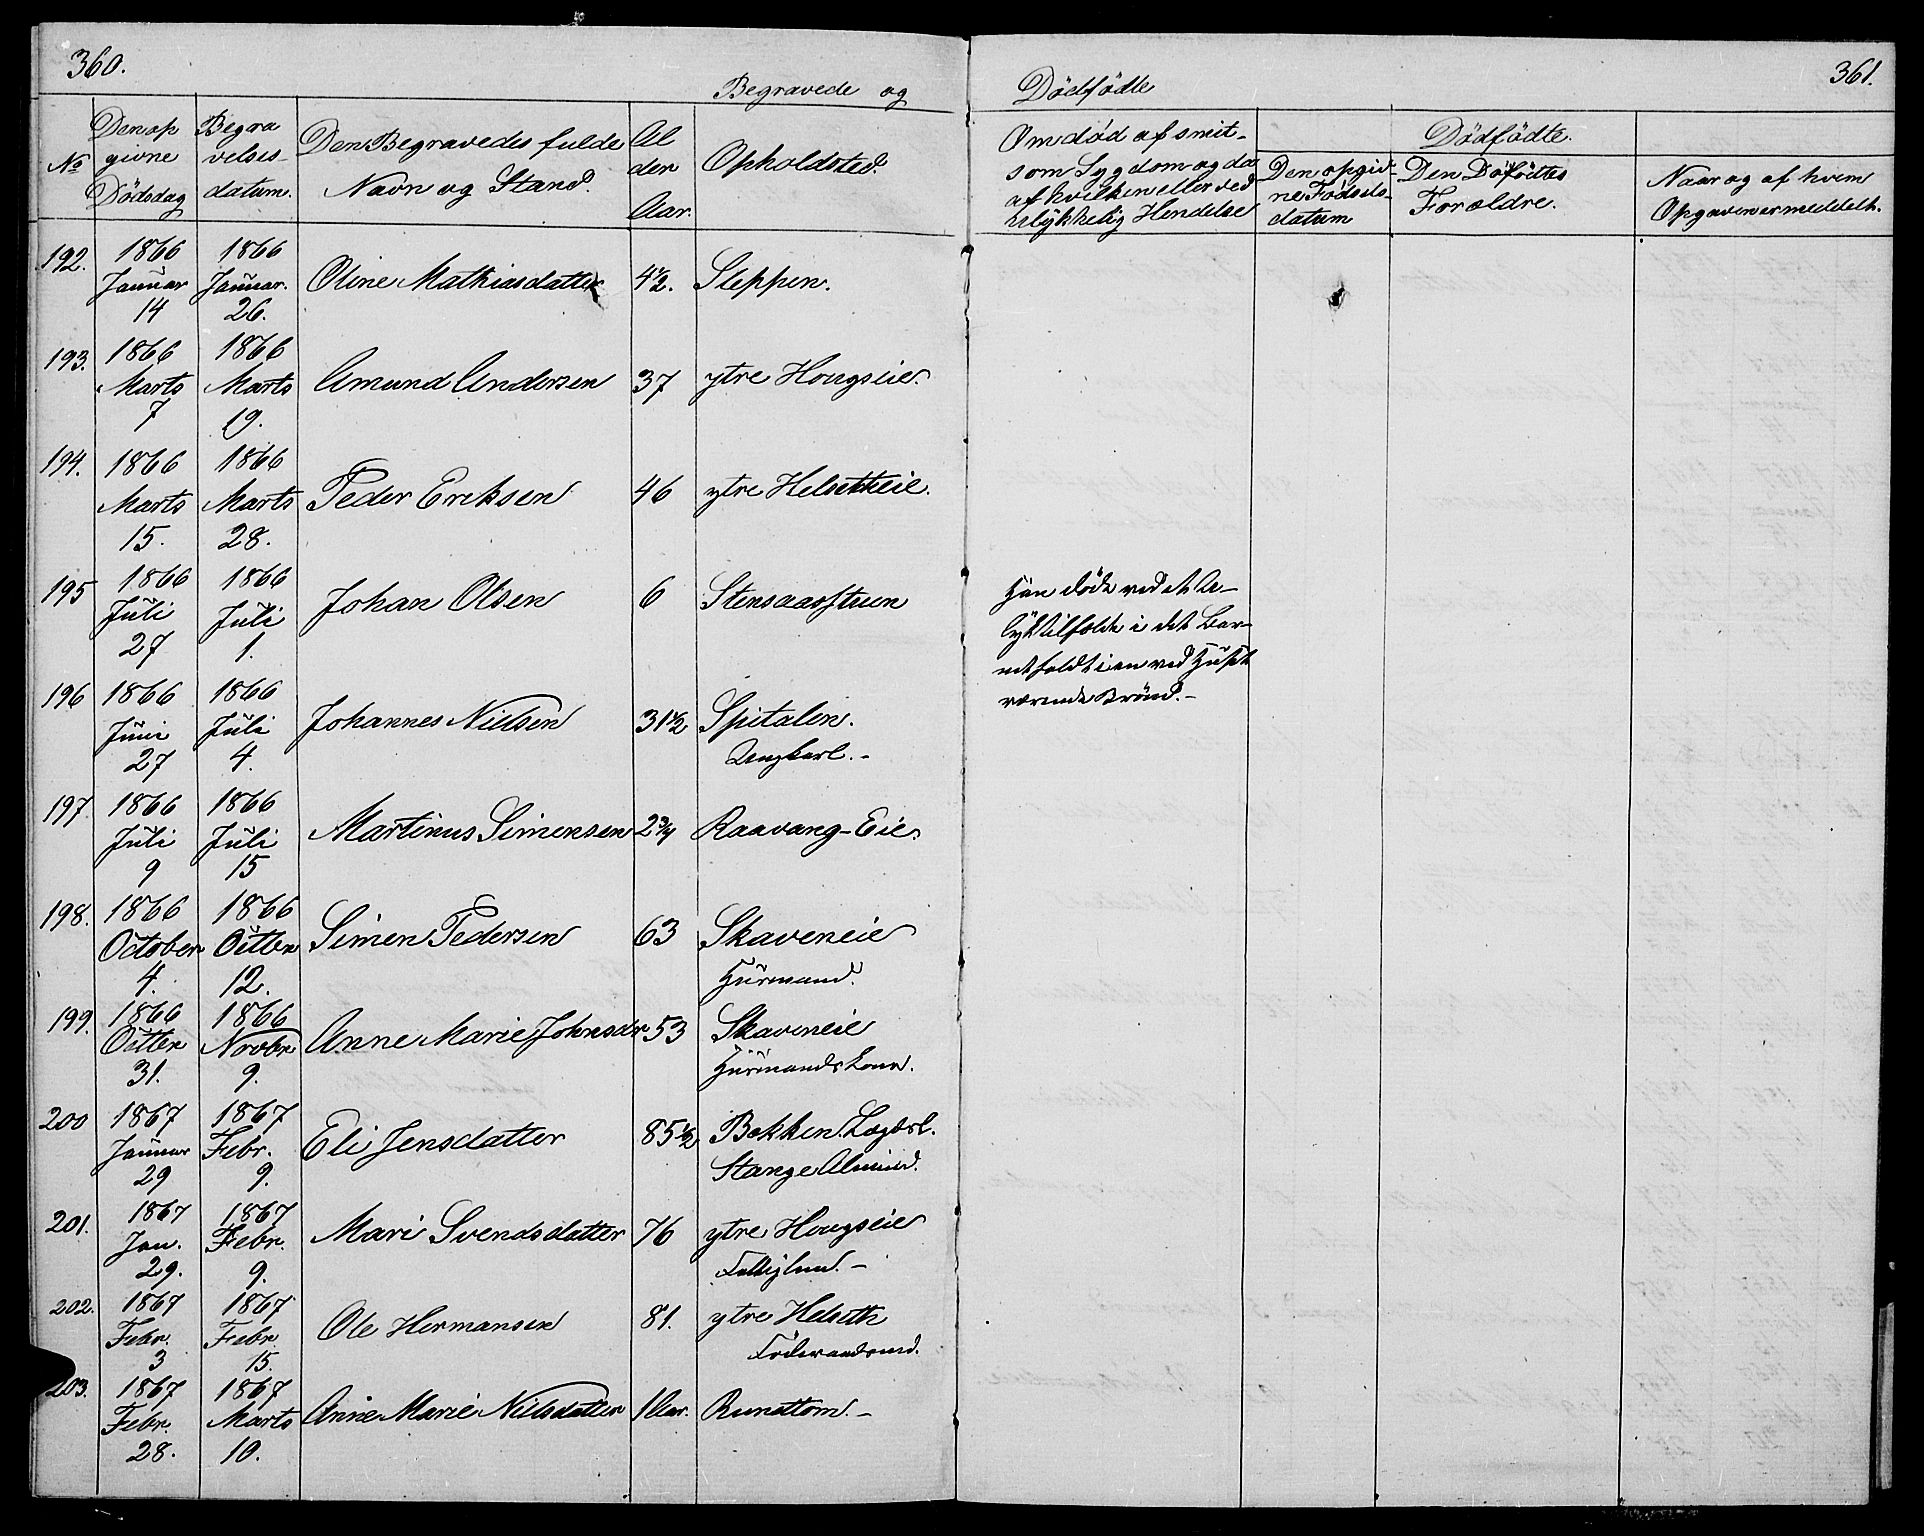 360.
361.
Begravede og
Dödfödte
No
Den op
givne
Dödsdag
Begra
velses-
datum.
Den Begravedes fulde
Navn og Stand.
Al
der
Aar.
Opholdsted.
Om död af smit-
som Sygdom og da
af hvilken eller ved
ulykkelig Hendelse
Dödfödte.
Den opgiv-
ne Födsels-
datum
Den Döfödtes
Forældre.
Naar og af hvem
Opgaven er meddelt.
192. 1866 Januar 14 1866 Januar. 26. Oline Mathiasdatter 4½. Steppen.
193. 1866 Marts 7 1866 Marts 19. Amund Andersen 37 ytre Hougseie.
194. 1866 Marts 15. 1866 Marts 28. Peder Eriksen 46 ytre Helsetheie.
195 1866 Juli 27 1866 Juli 1. Johan Olsen 6 Stensaasstuen
Han döde ved et U-
lyktilfælde i det Bar-
net faldt i en ved Huset
værende Brönd.-
196 1866 Juni 27 1866 Juli 4. Johannes Nielsen 31½ Spitalen.
Ungkarl.-
197. 1866 Juli 9 1866 Juli 15 Martinus Simensen 2¾ Raavang-Eie.
198. 1866 October 4. 1866 Octbr 12. Simen Pedersen 63 Skaveneie
Husmand.
199. 1866 Octbr 31. 1866 Novbr 9. Anne Marie Johnsdr 53 Skaveneie
Husmandskone.
200 1867 Januar 29 1867 Febr. 9. Eli Jensdatter 85½ Bekken. Lægdsl.
Stange Almind.
201. 1867 Jan. 29. 1867 Febr. 9. Mari Svendsdatter 76 ytre Hougseie
Fattiglem.-
202. 1867 Febr. 3 1867 Febr. 15. Ole Hermansen 81. ytre Helseth
Föderaadsmd.
203. 1867 Febr. 28. 1867 Marts 10. Anne Marie Nielsdatter 1 Aar. Rundtom.-